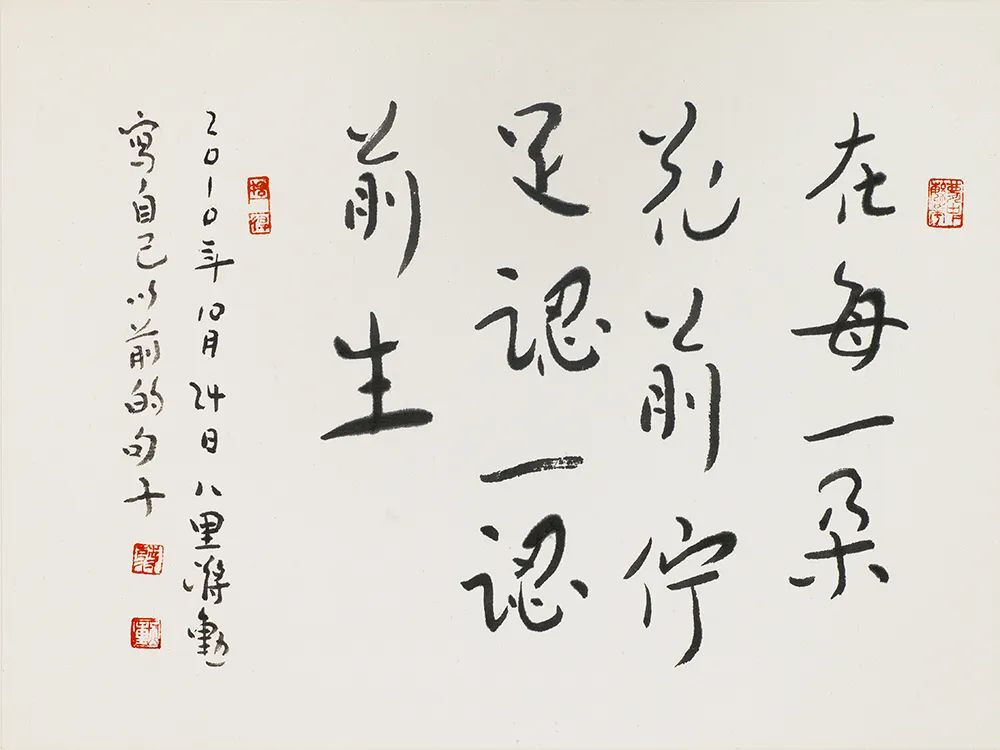 在每一朵
花前佇
足認一認
前生
2010年10月24日八里蔣勳
寫自己以前的句子